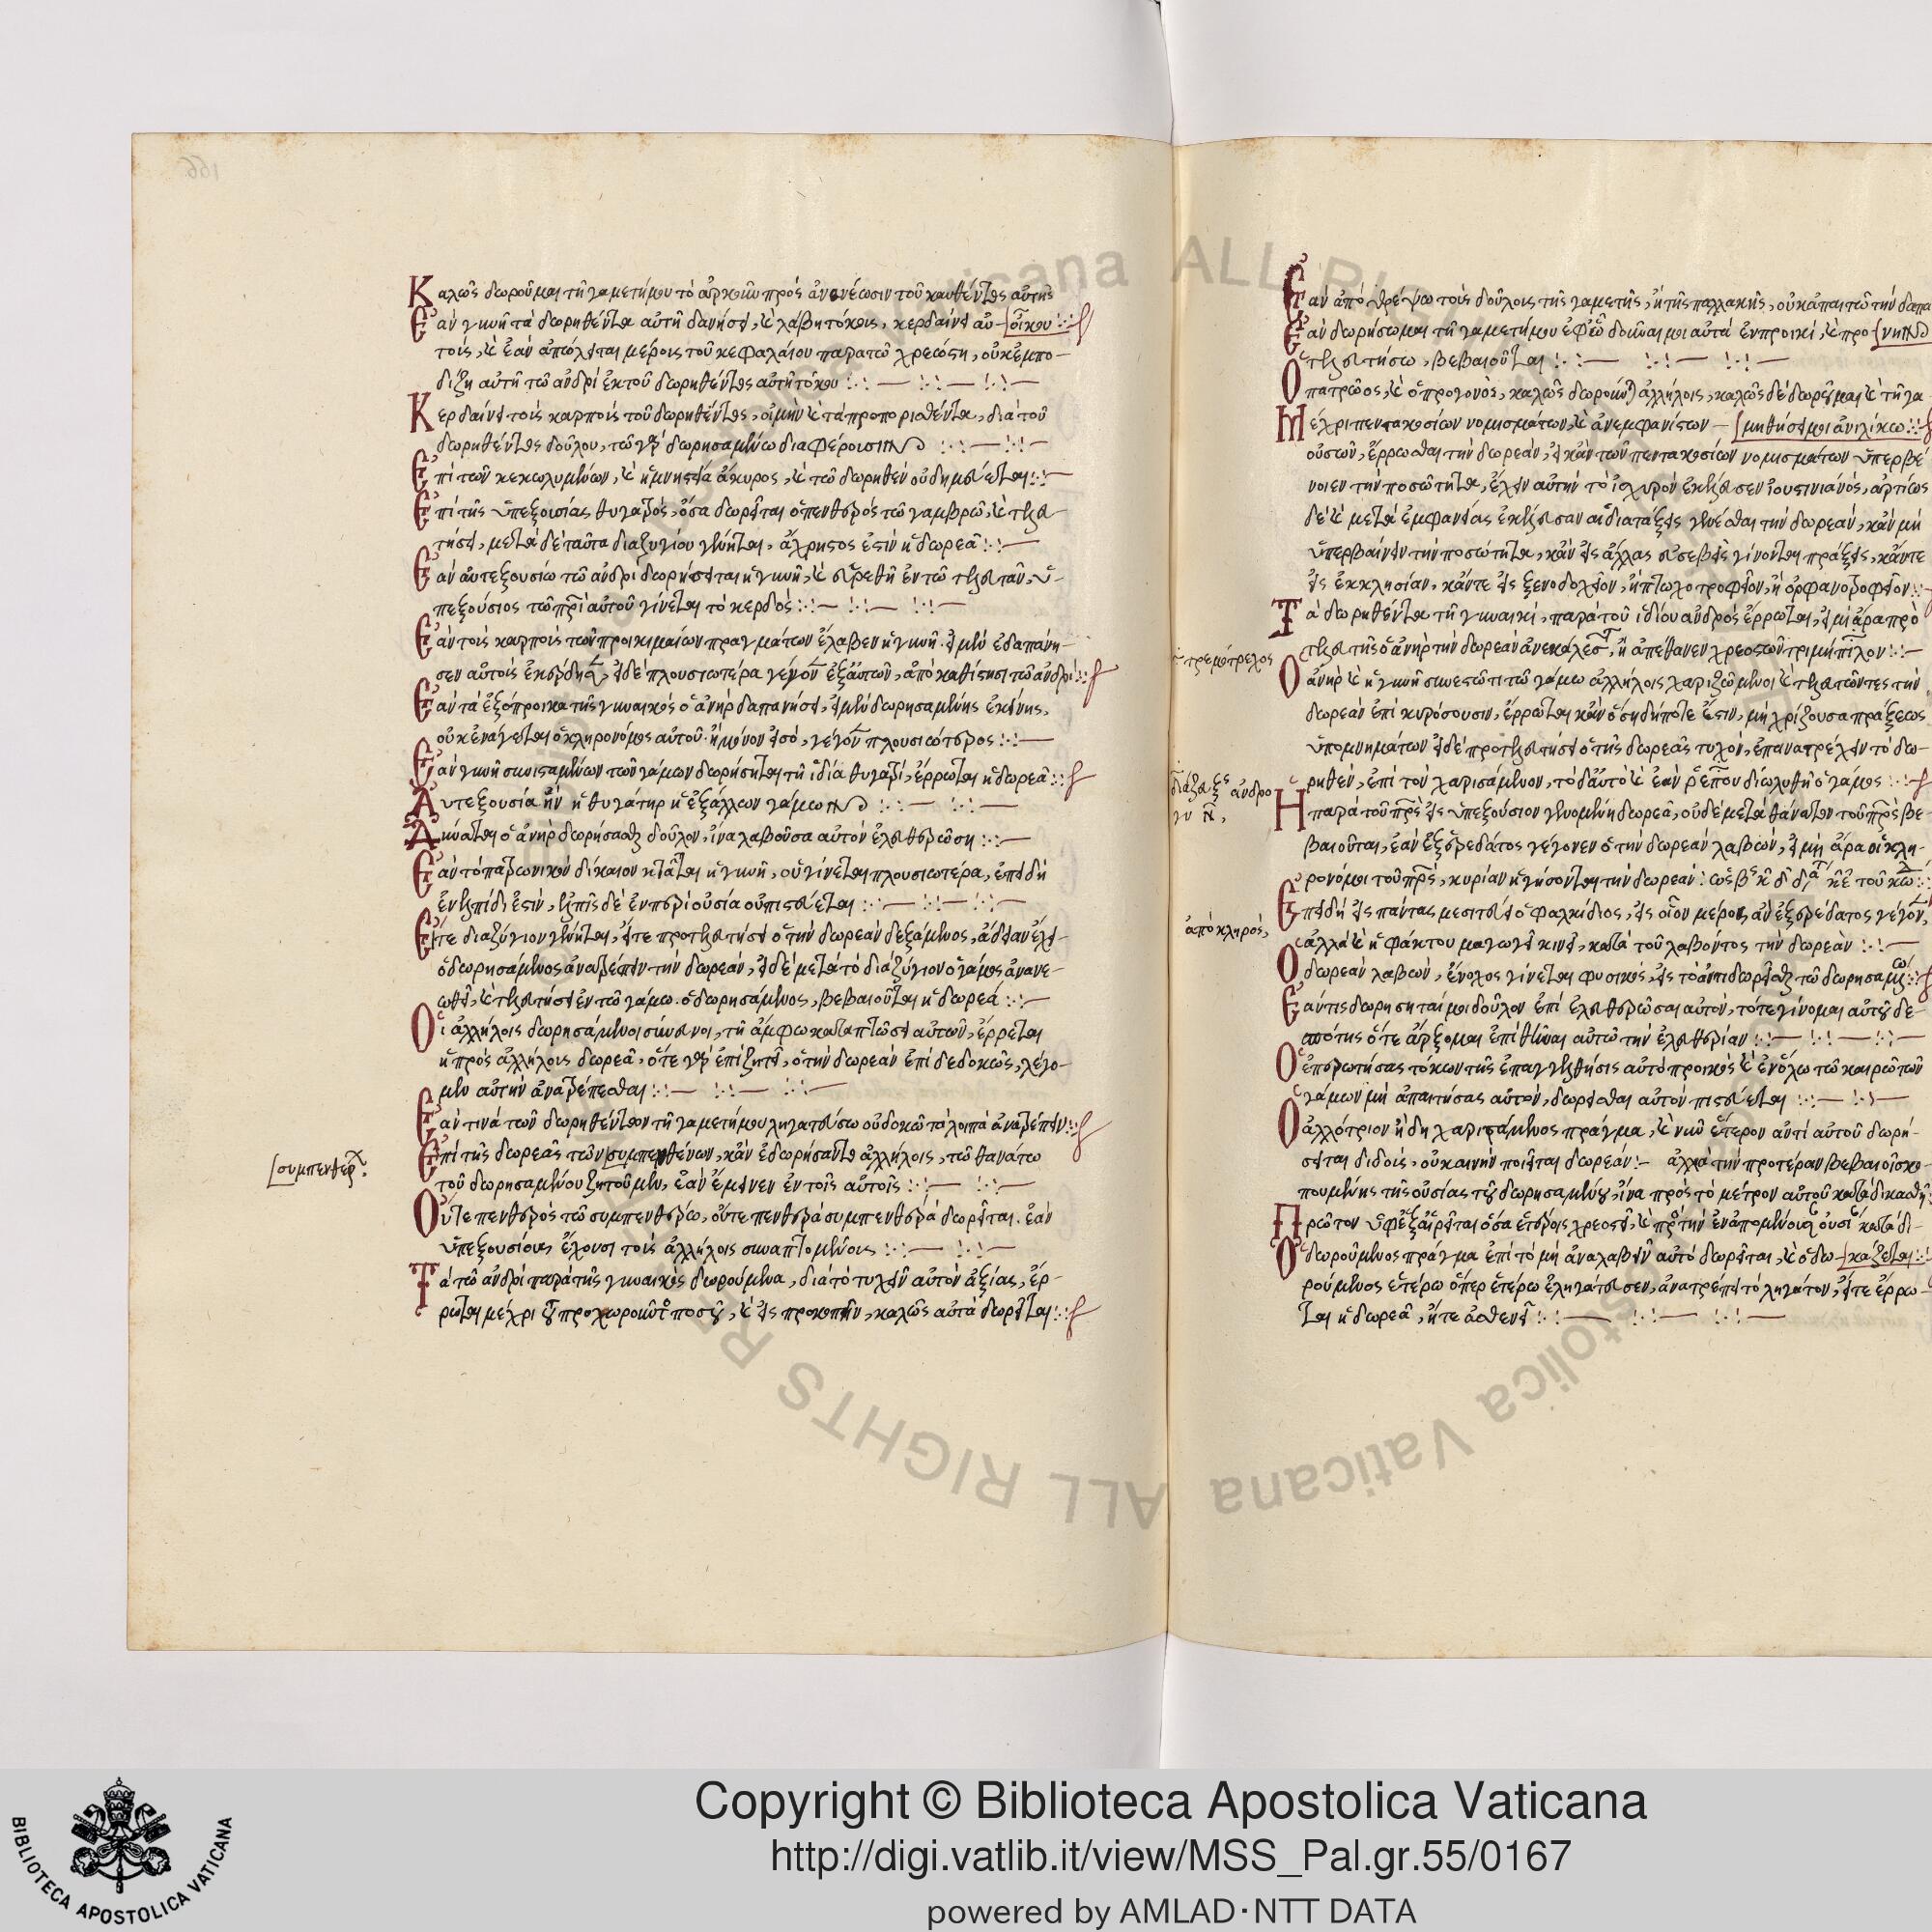 Καλῶς δωροῦμαι τῇ γαμετῇ μου τὸ ἀρκοῦν πρὸς ἀνανέωσιν τοῦ καυθέντος αὐτῆς
Ἐὰν γυνὴ τὰ δωρηθέντα αὐτῇ δανήσει, καὶ λάβῃ τόκους, κερδαίνει αὐ- οἴκου
τούς, καὶ ἐὰν ἀπόληται μέρος τοῦ κεφαλαίου παρὰ τῷ χρεώστῃ, οὐκ ἐμπο-
δίζῃ αὐτῇ τῷ ἀνδρὶ ἐκ τοῦ δωρηθέντος αὐτῇ τόκου
Κερδαίνει τοὺς καρποὺς τοῦ δωρηθέντος, οὐ μὴν καὶ τὰ προποριαθέντα, διὰ τοῦ
δωρηθέντος δούλου, τῷ γὰρ δωρησαμένῳ διαφέρουσιν
Ἐπὶ τῶν κεκωλυμένων, καὶ ἡ μνηστεία ἄκυρος, καὶ τῷ δωρηθὲν οὐ δημεύεται
Ἐπὶ τῆς ὑπεξουσίας θυγατρὸς, ὅσα δωρεῖται ὁ πενθερὸς τῷ γαμβρῷ, καὶ τελευ-
τήσει, μετὰ δὲ ταῦτα διαζυγίου γένηται, ἄχρηστος ἐστὶν ἡ δωρεά
Ἐὰν αὐτεξουσίῳ τῷ ἀνδρὶ δωρήσηται ἡ γυνὴ, καὶ εὑρεθῇ ἐν τῷ τελευτᾶν, ὑ-
πεξούσιος τῷ πρὶ αὐτοῦ γίνεται τὸ κερδός
Ἐὰν τοὺς καρποὺς τῶν προικιμαίων πραγμάτων ἔλαβεν ἡ γυνὴ. εἰ μὲν ἐδαπάνη-
σεν αὐτοὺς ἐκερδησ, εἰ δὲ πλουσιωτέρα γέγον ἐξ αὐτῶν, ἀποκαθίστησι τῷ ἀνδρί
Ἐὰν τὰ ἐξόπροικα τῆς γυναικὸς ὁ ἀνὴρ δαπανήσει, εἰ μὲν δωρησαμένης ἐκείνης,
οὐκ ἐνάγεται ὁ κληρονόμος αὐτοῦ. ἢ μόνον εἰς ὃ, γέγον πλουσιώτερος
Ἐὰν γυνὴ συνισταμένων τῶν γάμων δωρήσηται τῇ ἰδίᾳ θυγατρί, ἔρρωται ἡ δωρεά
Αὐτεξουσία ἦν ἡ θυγάτηρ ἡ ἐξ ἄλλων γάμων
Δύναται ὁ ἀνὴρ δωρήσασθαι δοῦλον, ἵνα λαβοῦσα αὐτὸν ἐλευθερώσῃ
Ἐὰν τὸ πατρωνικὸν δίκαιον κτᾶται ἡ γυνὴ, οὐ γίνεται πλουσιωτέρα, ἐπειδὴ
ἐν ἐλπίδι ἐστὶν, ἐλπὶς δὲ ἐν περιουσία οὐ πιστεύεται
Εἴτε διαζύγιον γένηται, εἴτε προτελευτήσει ὁ τὴν δωρεὰν δεξάμενος, ἄδειαν ἔχει
ὁ δωρησάμενος ἀνατρέπειν τὴν δωρεὰν, εἰ δὲ μετὰ τὸ διαζύγιον ὁ γάμος ἀνανε-
ωθῇ, καὶ τελευτήσει ἐν τῷ γάμῳ. ὁ δωρησάμενος, βεβαιοῦται ἡ δωρεά
Οἱ ἀλλήλοις δωρησάμενοι σύνευνοι, τῇ ἄμφω καταπτώσει αὐτῶν, ἔρρεται
ἡ πρὸς ἀλλήλους δωρεά, ὅτε γὰρ ἐπιζητεῖ, ὁ τὴν δωρεὰν ἐπιδεδωκῶς, λέγο-
μεν αὐτὴν ἀνατρέπεσθαι
Ἐάν τινα τῶν δωρηθέντων τῇ γαμετῇ μου ληγατεύσω οὐ δοκῶ τὰ λοιπὰ ἀνατρέπειν
Ἐπὶ τῆς δωρεᾶς τῶν συμπενθένων, κἂν ἐδωρήσαντο ἀλλήλοις, τῷ θανάτῳ
συμπενθερ
τοῦ δωρησαμένου ζητοῦμεν, ἐὰν ἔμεινεν ἐν τοῖς αὐτοῖς
Οὔτε πενθερὸς τῷ συμπενθέρῳ, οὔτε πενθερὰ συμπενθερᾷ δωρεῖται. ἐὰν
ὑπεξουσίους ἔχουσι τοὺς ἀλλήλοις συναπτομένους
Τὰ τῷ ἀνδρὶ παρὰ τῆς γυναικὸς δωρούμενα, διὰ τὸ τυχεῖν αὐτὸν ἀξίας, ἔρ-
ρωται μέχρι τοῦ προχωροῦντος ποσοῦ, καὶ εἰς προκοπὴν, καλῶς αὐτὰ δωρεῖται
Ἐὰν ἀποθρέψω τοὺς δούλους τῆς γαμετῆς, ἢ τῆς παλλακῆς, οὐκ ἀπαιτῶ τὴν δαπα
Ἐὰν δωρήσωμαι τῇ γαμετῇ μου ἐφ' ᾧ δοῦναι μοι αὐτὰ ἐν προικί, καὶ προ- νην
τελευτήσω, βεβαιοῦται
Ὁ πατρῶος, καὶ ὁ προγονὸς, καλῶς δωροῦνται ἀλλήλοις, καλῶς δὲ δωροῦμαι καὶ τῇ γα
Μέχρι πεντακοσίων νομισμάτων, καὶ ἀνεμφανίστων - μηθήσει μοι ἀνιλίκω
οὐσῶν, ἔρρωσθαι τὴν δωρεὰν, εἰ κἂν τῶν πεντακοσίων νομισμάτων ὑπερβέ
νοιεν τὴν ποσότητα, ἔχειν αὐτὴν τὸ ἰσχυρὸν ἐκέλευσεν Ἰουστινιανός, ἀρτίως
δὲ καὶ μετὰ ἐμφανείας ἐκέλευσαν αἱ διατάξεις γενέσθαι τὴν δωρεὰν, κἂν μὴ
ὑπερβαίνειν τὴν ποσότητα, κἂν εἰς ἄλλας εὐσεβεῖς γίνονται πράξεις, κἄντε
εἰς ἐκκλησίαν, κἄντε εἰς ξενοδοχεῖον, ἢ πτωχοτροφεῖον, ἢ ὀρφανοτροφεῖον
Τὰ δωρηθέντα τῇ γυναικί, παρὰ τοῦ ἰδίου ἀνδρὸς ἔρρωται, εἰ μὴ ἄρα πρὸ
τρεμότρεχος
τελευτῆς ὁ ἀνὴρ τὴν δωρεὰν ἀνεκαλέσ, ἢ ἀπέθανεν χρεωστῶν
Ὁ ἀνὴρ καὶ ἡ γυνὴ συνεστῶτι τῷ γάμῳ ἀλλήλοις χαριζόμενοι καὶ τελευτῶντες τὴν
δωρεὰν ἐπικυρόσουσιν, ἔρρωται κἂν ὅση δήποτε ἔστιν, μὴ χρίζουσα πράξεως
ὑπομνημάτων εἰ δὲ προτελευτήσει ὁ τῆς δωρεᾶς τυχὸν, ἐπανατρέχειν τὸ δω-
ρηθὲν, ἐπὶ τὸν χαρισάμενον, τὸ δ' αὐτὸ καὶ ἐὰν διωλυθῇ ὁ γάμος
ἀνδρο
Ἡ παρὰ τοῦ πρς εἰς ὑπεξούσιον γενομένη δωρεά, οὐδὲ μετὰ θάνατον τοῦ πρς βε-
βαιοῦται, ἐὰν ἐξερεδάτος γέγονεν ὁ τὴν δωρεὰν λαβών, εἰ μὴ ἄρα οἱ κλη-
ρονόμοι τοῦ πρς, κυρίαν ἡγήσονται τὴν δωρεάν
Ἐπειδὴ εἰς πάντας μεσιτεύει ὁ φαλκίδιος, εἰς οἷον μέρους ἂν ἐξερεδάτος γέγον,
ἀπόκληρος,
ἀλλὰ καὶ ἡ φάκτου μαγωγὴ κινεῖ, κατὰ τοῦ λαβόντος τὴν δωρεὰν
Ὁ δωρεὰν λαβών, ἔνοχος γίνεται φυσικῶς, εἰς τὸ ἀντιδωρεῖσθαι τῷ δωρησαμένῳ
Ἐάν τις δωρήσηταί μοι δοῦλον ἐπὶ ἐλευθερῶσαι αὐτὸν, τότε γίνομαι αὐτοῦ δε-
σπότης ὅτε ἄρξομαι ἐπιθεῖναι αὐτῷ τὴν ἐλευθερίαν
Ὁ ἐπερωτήσας τόκων τῆς ἐπαγγελθήσις αὐτὸ προικὸς καὶ ἐν ὅλῳ τῷ καιρῷ τῶν
γάμων μὴ ἀπαιτήσας αὐτὸν, δωρεῖσθαι αὐτὸν πιστεύεται
Ὁ ἀλλότριον ἤδη χαρισάμενος πρᾶγμα, καὶ νῦν ἕτερον ἀντὶ αὐτοῦ δωρή-
σεται διδούς, οὐ καινὴν ποιεῖται δωρεάν ἀλλὰ τὴν προτέραν βεβαιοῖ σκο-
πουμένης τῆς οὐσίας τοῦ δωρησαμένου, ἵνα πρὸς τὸ μέτρον αὐτοῦ καταδικασθῇ
Πρῶτον ὑφεξαιρεῖται ὅσα ἑτέροις χρεωστεῖ, καὶ πρὸς τὴν ἐναπομένουσαν οὐσί καταδι-
Ὁ δωρούμενος πρᾶγμα ἐπὶ τὸ μὴ ἀναλαβεῖν αὐτὸ δωρεῖται, καὶ ὁ δω- κάζεται
ρούμενος ἑτέρῳ ὅπερ ἑτέρῳ ἐληγάτευσεν, ἀνατρέπει τὸ ληγάτον, εἴτε ἔρρω-
ται ἡ δωρεά, ἤτε ἀσθενεῖ
ALL RIGHTS
Vaticana
Copyright © Biblioteca Apostolica Vaticana
http://digi.vatlib.it/view/MSS_Pal.gr.55/0167
powered by AMLAD·NTT DATA
BIBLIOTECA APOSTOLICA VATICANA